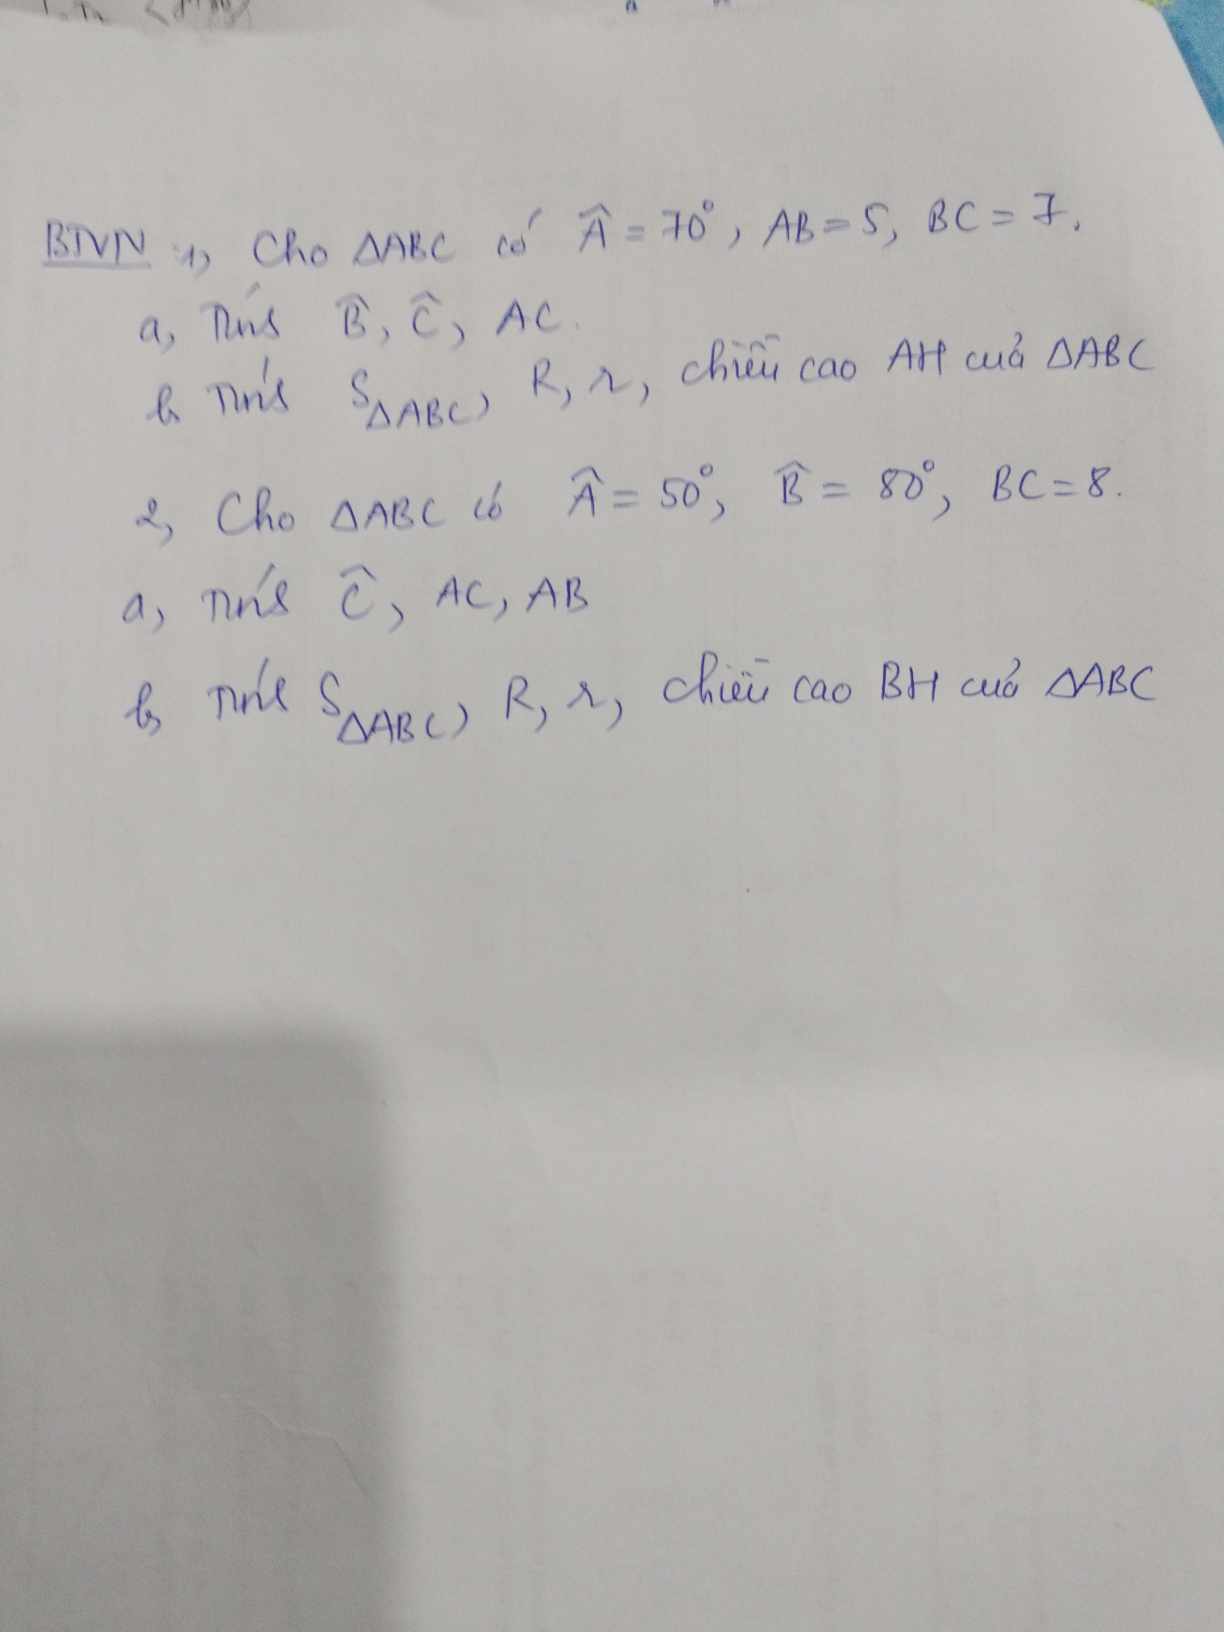 BTVN 1, Cho ΔABC có Â = 70°, AB = 5, BC = 7.
a, Tính B̂, Ĉ, AC.
b, Tính S_ΔABC, R, r, chiều cao AH của ΔABC
2, Cho ΔABC có Â = 50°, B̂ = 80°, BC = 8.
a, Tính Ĉ, AC, AB
b, Tính S_ΔABC, R, r, chiều cao BH của ΔABC